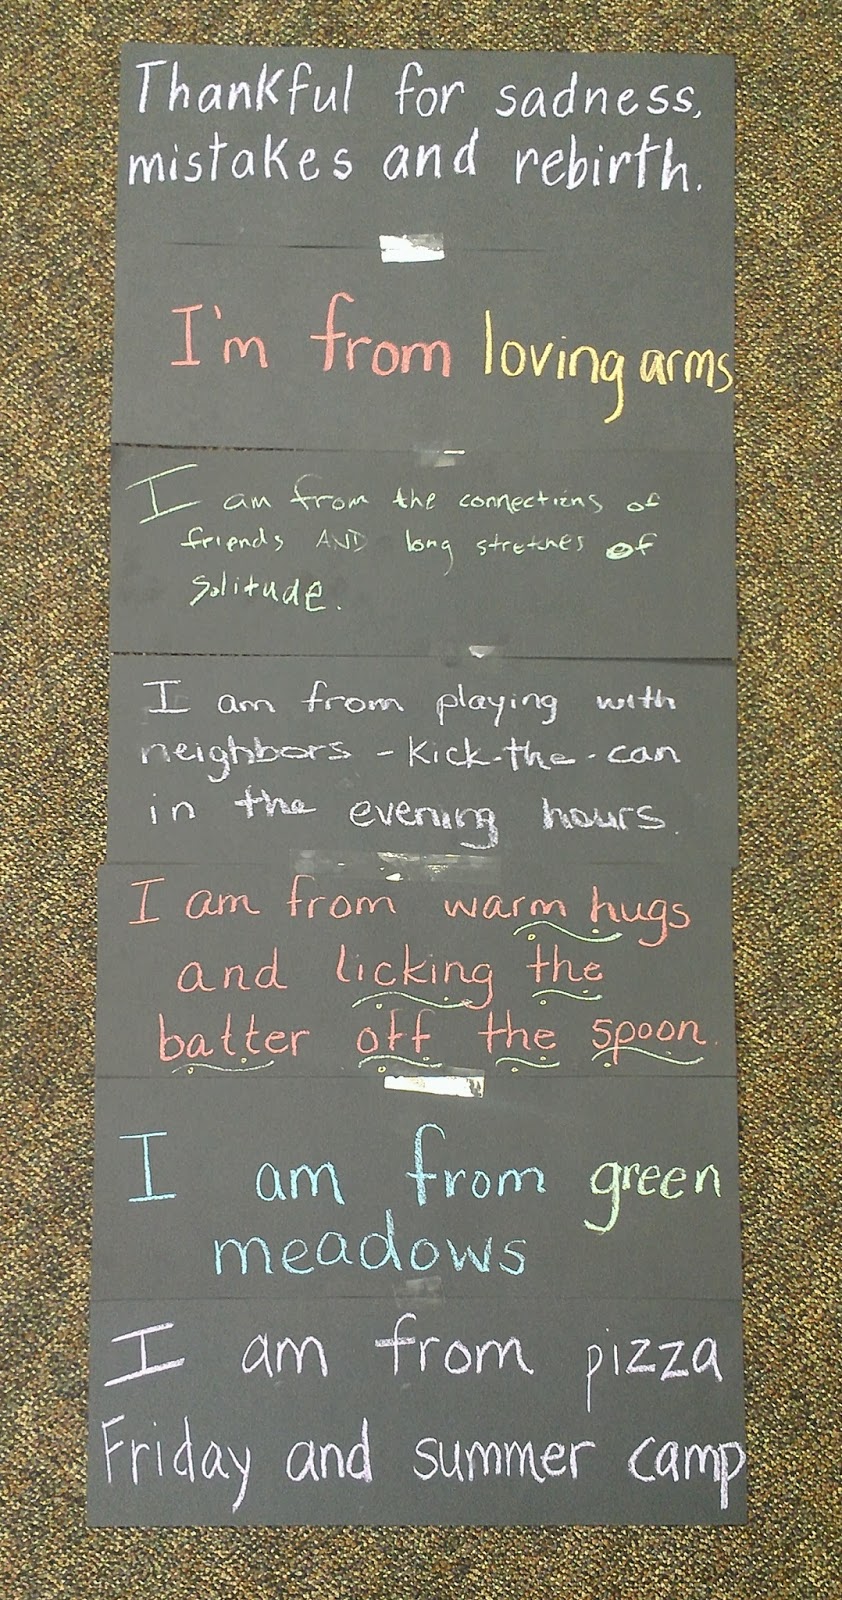 Thankful for sadness,
mistakes and rebirth.
I'm from loving arms
I am from the connections of
friends AND long stretches of
solitude.
I am from playing with
neighbors - kick-the-can
in the evening hours.
I am from warm hugs
and licking the
batter off the spoon.
I am from green
meadows
I am from pizza
Friday and summer camp